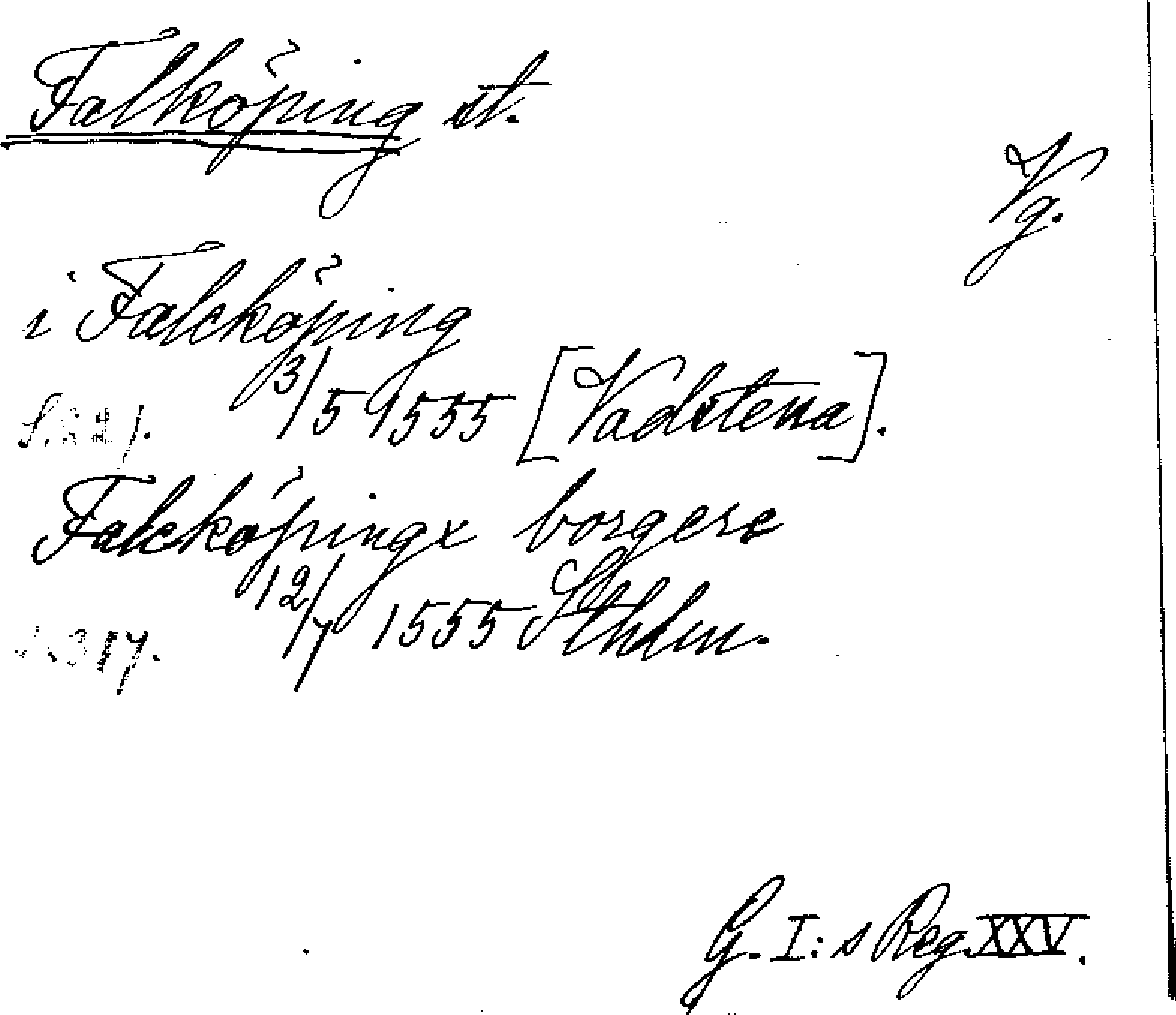 Falköping st.
Vg.
i Falcköping
3/5 1555 [Vadstena].
Falcköpingx borgere
12/7 1555 Sthlm.
s. 317.
G. I:s Reg. XXV.